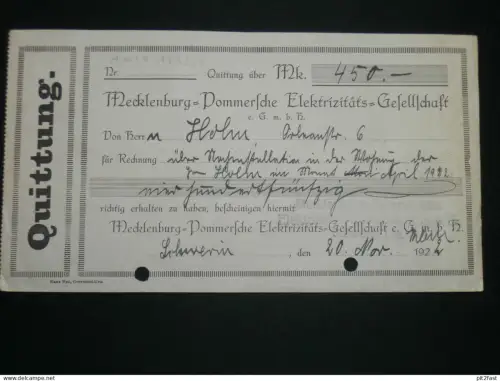 Quittung.
Nr. Quittung über Mk. 450.-
Mecklenburg=Pommersche Elektrizitäts=Gesellschaft
e. G. m. b. H.
Von Herrn Holm Orleanstr. 6
für Rechnung über in der Wohnung der
Holm im Monat April 1922
vierhundertfünfzig
richtig erhalten zu haben, bescheinigen hiermit
Mecklenburg=Pommersche Elektrizitäts=Gesellschaft e. G. m. b. H.
Schwerin, den 20. Nov. 1922
© pix2fast